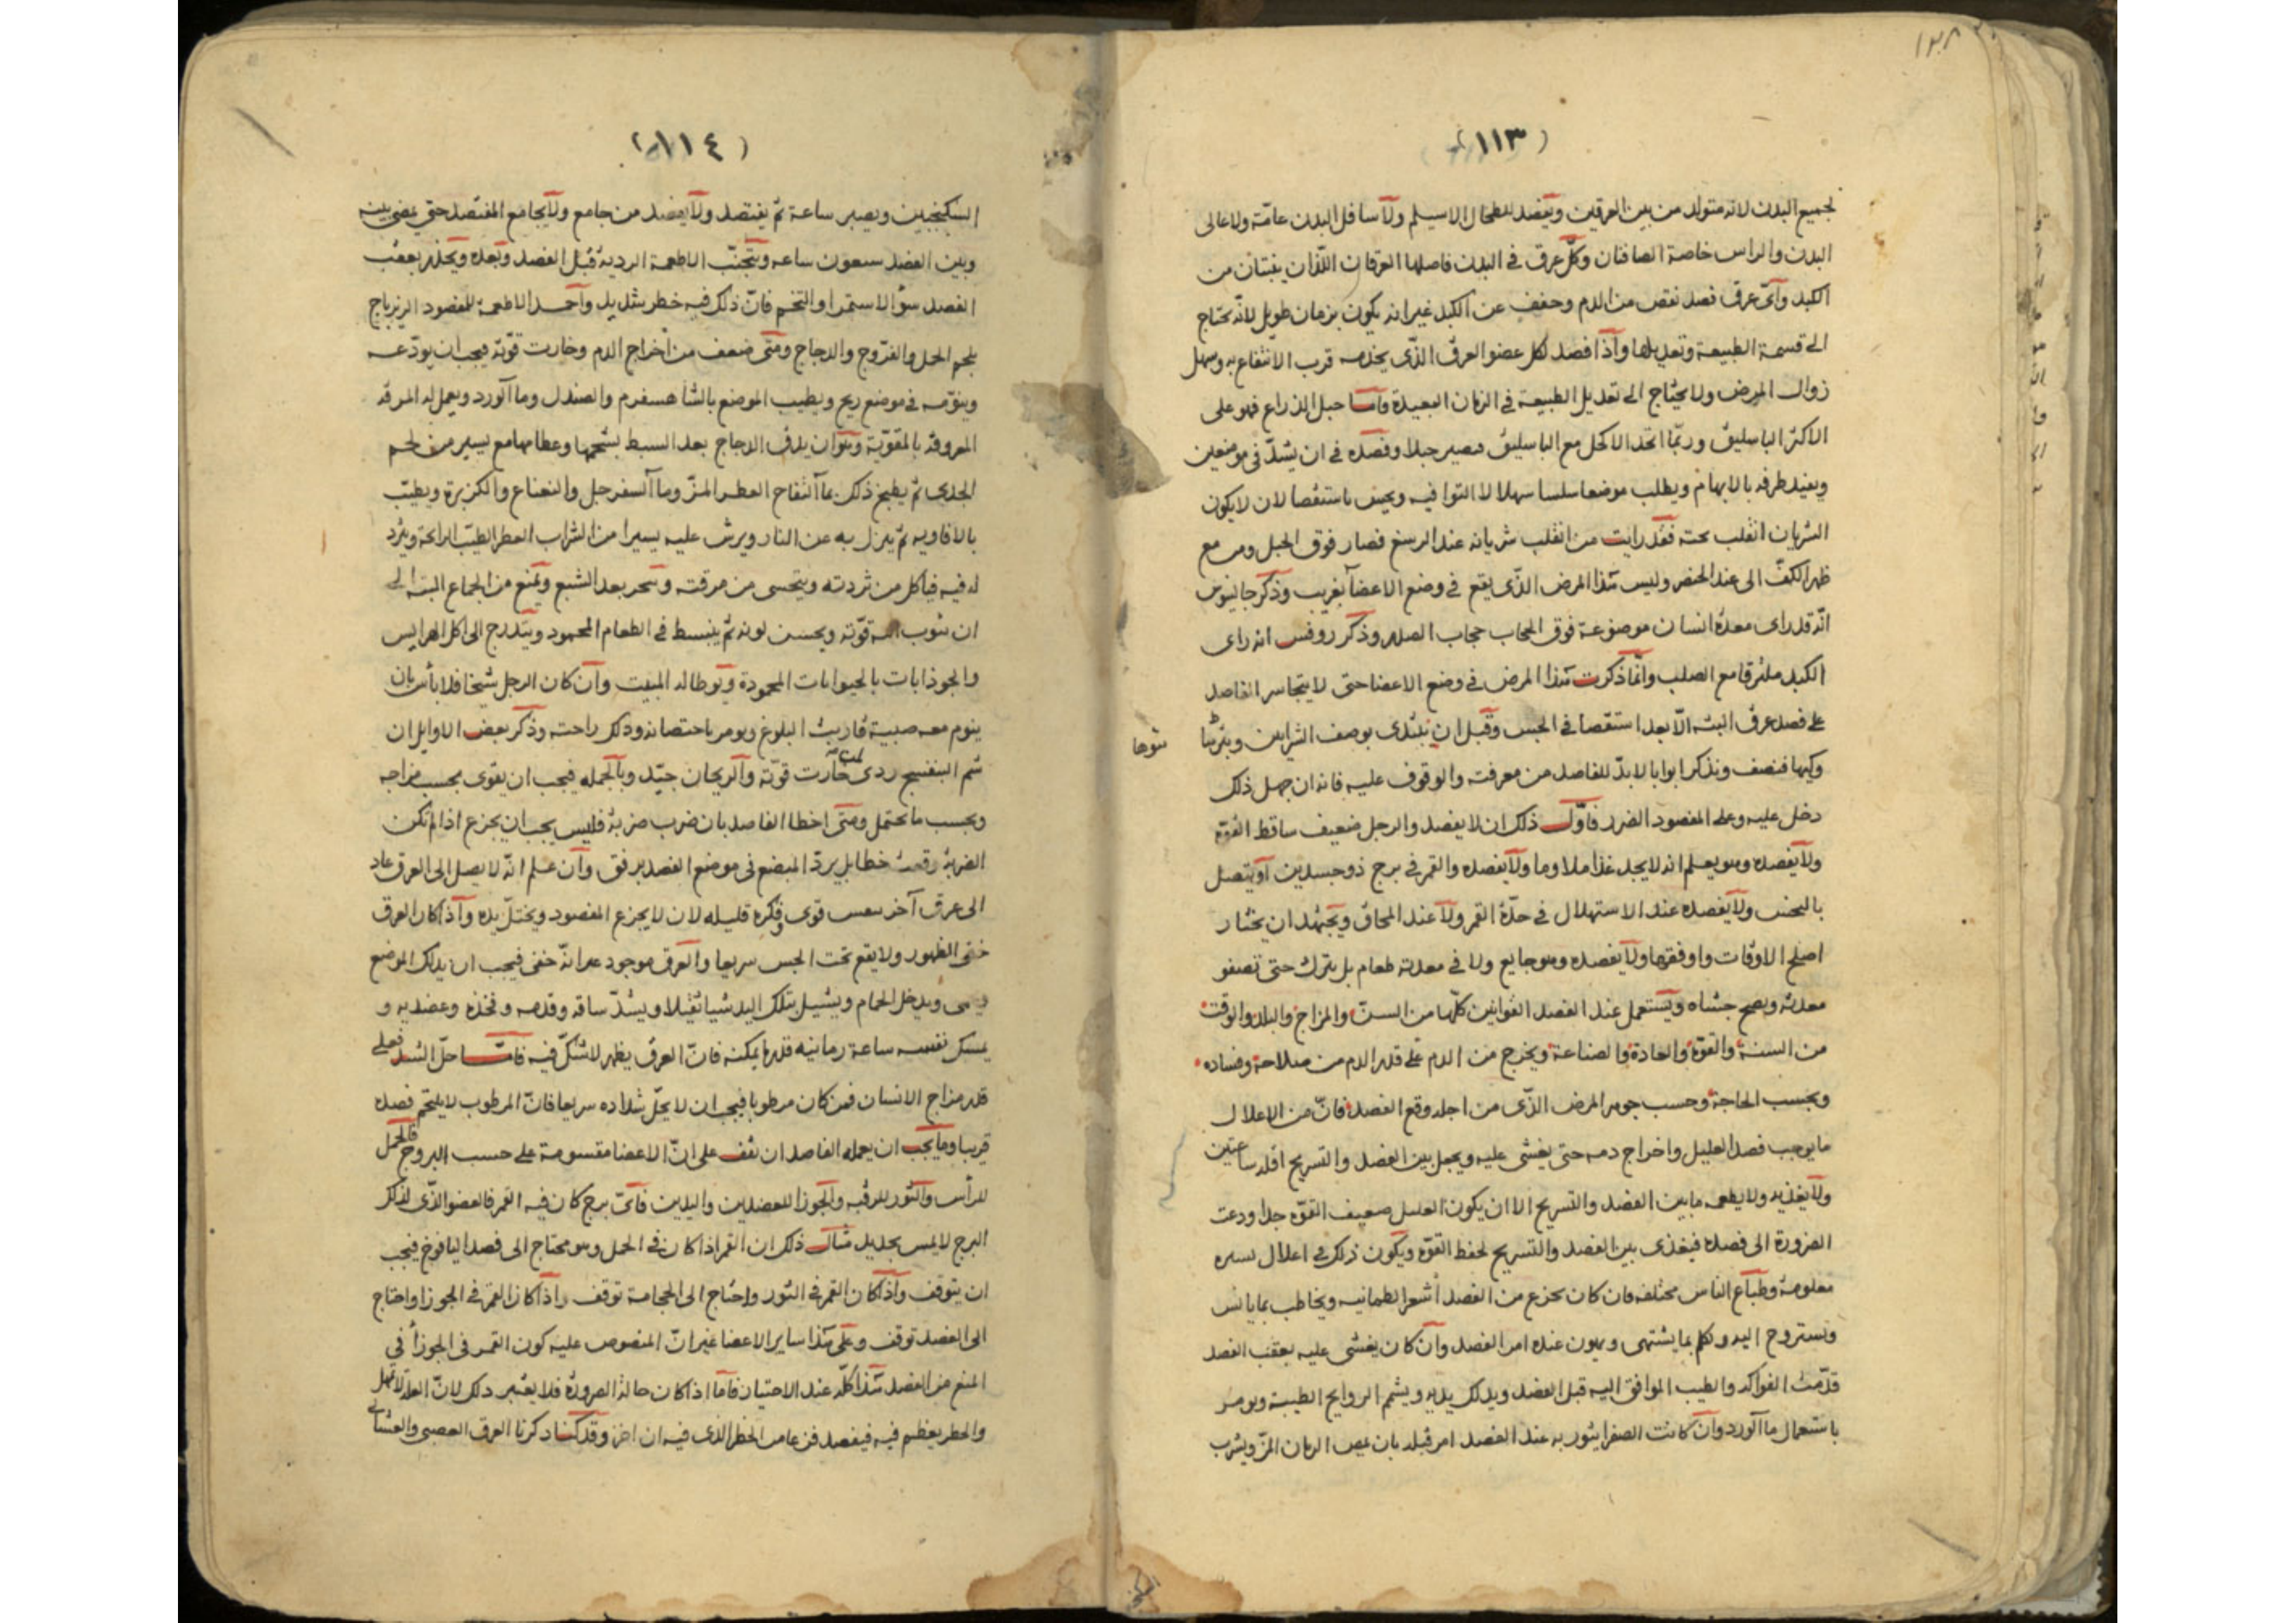 (١١٣)
لجميع البدن لانه متولد من بين العرقين ويفصد للطحال الاسيلم ولاسافل البدن عامّة ولاعالى
البدن والراس خاصة الصافنان وكلّ عرق فى البدن فاصلها العرقان اللذان ينبتان من
الكبد وأىّ عرق فصد نقص من الدم وخفف عن الكبد غير انه يكون بزمان طويل لانّه يحتاج
الى قسمة الطبيعة وتعديلها واذا فصد لكل عضو العرق الذّى يخدمه قرب الانتفاع به وسهل
زوال المرض ولا يحتاج الى تعديل الطبيعة فى الزمان البعيدة وامّا حبل الذراع فهو على
الاكثر الباسليق وربّما اتّحد الاكحل مع الباسليق فصير حبلا وفصده فى ان يشدّ فى موضعين
ويقيد طرفه بالابهام ويطلب موضعا سلسا سهلا لا التوا فيه ويجس باستقصا لان لا يكون
الشريان انقلب تحته فقد رايت من انقلب شريانه عند الرسغ فصار فوق الحبل ومر مع
ظهر الكفّ الى عند الخنصر وليس هذا المرض الذّى يقع فى وضع الاعضا بغريب وذكر جالينوس
انّه قد راى معدة انسان موضوعة فوق الحجاب حجاب الصدر وذكر روفس انه راى
الكبد ملتزقا مع الصلب وانّما ذكرت هذا المرض فى وضع الاعضا حتى لا يتجاسر الفاصد
على فصد عرق البته الّا بعد استقصا فى الجس وقبل ان نبتدى بوصف الشرايين وبترها
نتوها
وكيها فنصف ونذكر ابوابا لا بدّ للفاصد من معرفته والوقوف عليه فانه ان جهل ذلك
دخل عليه وعلى المفصود الضرر فاوّل ذلك ان لا يفصد والرجل ضعيف ساقط القوّة
ولا يفصده وهو يعلم انه لا يجد غذا ملاوما ولا يفصده والقمر فى برج ذو جسدين او يتصل
بالنحس ولا يفصده عند الاستهلال فى حدّة القمر ولا عند المحاق ويجتهد ان يختار
اصلح الاوقات واوفقها ولا يفصده وهو جايع ولا فى معدته طعام بل يترك حتى تصفو
معدته ويصح جشاه ويستعمل عند الفصد القوانين كلّها من السنّ والمزاج والبلد والوقت
من السنة والقوة والعادة والصناعة ويخرج من الدم على قدر الدم من صلاحه وفساده
وبحسب الحاجة وحسب جوهر المرض الذّى من اجله وقع الفصد فانّ من الاعلال
ما يوجب فصد العليل واخراج دمه حتى يغشى عليه ويجعل بين الفصد والتسريح اقله ساعتين
ولا يغذيه ولا يطعمه ما بين الفصد والتسريح الا ان يكون العليل ضعيف القوّة جدا ودعت
الضرورة الى فصده فيغذى بين الفصد والتسريح لحفظ القوّة ويكون ذلك فى اعلال يسيره
معلومة وطبآع الناس مختلفه فان كان يجزع من الفصد أشعر الطمانيه ويخاطب بما يانس
ويستروح اليه وكلم بما يشتهى ويهون عنده امر الفصد وان كان يغشى عليه بعقب الفصد
قدّمت الفواكه والطيب الموافق اليه قبل الفصد ويدلك يديه ويشم الروايح الطيبة ويومر
باستعمال ماآلورد وان كانت الصفرا يثور به عند الفصد امر قبله بان يمص الرمان المزّ ويشرب
(١١٤)
السكنجبين ويصبر ساعة ثمّ يفتصد ولا يفصد من جامع ولا يجامع المفتصد حتى يمضى بينه
وبين الفصد سبعون ساعه ويتجنّب الاطعمة الردية قبل الفصد وبعده ويحذر بعقب
الفصد سؤ الاستمرا والتخم فانّ ذلك فيه خطر شديد واحمد الاطعمة للمفصود الزيرباج
بلحم الحمل والفرّوج والدجاج ومتى ضعف من اخراج الدم وخارت قوّته فيجب ان يودّعه
وينوّمه فى موضع ريح ويطيب الموضع بالشاهسفرم والصندل وماآلورد ويعمل له المرقه
المعروفة بالمقوّية وهو ان يدق الدجاج بعد السبط بشحمها وعظامها مع يسير من لحم
الجدى ثمّ يطبخ ذلك بماآلتفاح العطر المزّ وماآلسفرجل والنعناع والكزبرة ويطيّب
بالافاويه ثمّ ينزل به عن النار ويرش عليه يسيرا من الشراب العطر الطيّب الرائحة ويثرد
له فيه فياكل من ثردته ويتحسى من مرقته وينحر بعد الشبع ويمنع من الجماع البته الى
ان يثوب اليه قوّته ويحسن لونه ثمّ ينبسط فى الطعام المحمود ويتدرج الى اكل الهرايس
والجوذابات بالحيوانات المحمودة ويوطا له المبيت وان كان الرجل شيخا فلا باس بان
ينوم معه صبية قاربت البلوغ ويومر باحتضانه ودلك راحته وذكر بعض الاوايل ان
شم البنفسج ردى لمن خارت قوّته والريحان جيّد وبالجمله فيجب ان يقوى بحسب مزاجه
وبحسب ما يحتمل ومتى اخطا الفاصد بان ضرب ضربة فليس يجب ان يجزع اذا لم تكن
الضربة وقعت خطا بل يردّ المبضع فى موضع الفصد برفق وان علم انّه لا يصل الى العرق عاد
الى عرق آخر بنفس قوى وفكره قليله لان لا يجزع المفصود ويختلّ يده واذا كان العرق
خفى الظهور ولا يقع تحت الجس سريعا والعرق موجود غير انّه خفى فيجب ان يدلك الموضع
ويدخل الحمام ويشيل بتلك اليد شيا ثقيلا ويشدّ ساقه وقدمه وفخذه وعضديه و
يمسك نفسه ساعة زمانيه قدر ما يمكنه فانّ العرق يظهر لا شكّ فيه فامّا حلّ الشد فعلى
قدر مزاج الانسان فمن كان مرطوبا فيجب ان لا يحلّ شداده سريعا فانّ المرطوب لا يلتحم فصده
قريبا ومما يجب ان يعمله الفاصد ان يقف على انّ الاعضا مقسومة على حسب البروج فالحمل
للرأس والثور للرقبه والجوزا للعضدين واليدين فاىّ برج كان فيه القمر فالعضو الذّى لذلك
البرج لا يمس بحديد مثال ذلك ان القمر اذا كان فى الحمل وهو محتاج الى فصد اليافوخ فيجب
ان يتوقف واذا كان القمر فى الثور واحتاج الى الحجامة توقف واذا كان القمر فى الجوزا واحتاج
الى الفصد توقف وعلى هذا ساير الاعضا غير انّ المنصوص عليه كون القمر فى الجوزآ فى
المنع من الفصد هذا كلّه عند الاختيار فامّا اذا كان حالة الضرورة فلا يعتبر ذلك لانّ العلة لا تمهل
والخطر يعظم فيه فيفصد فن عامر الخطر الذى فيه ان اخر وقد كنا ذكرنا العرق العصبى والغشائى